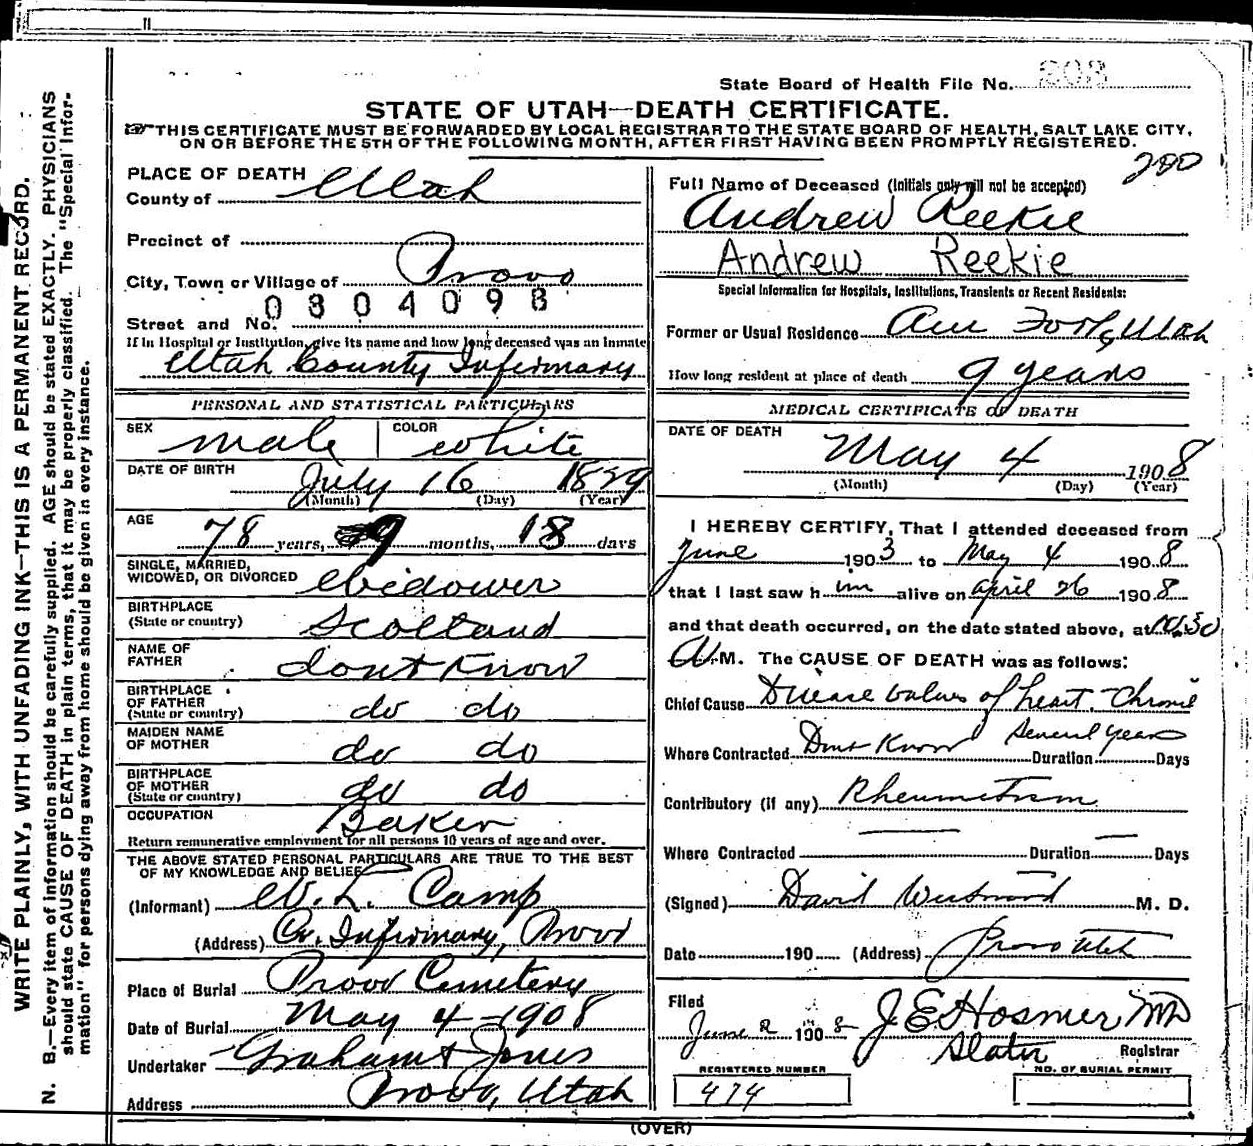 State Board of Health File No. 203
STATE OF UTAH—DEATH CERTIFICATE.
THIS CERTIFICATE MUST BE FORWARDED BY LOCAL REGISTRAR TO THE STATE BOARD OF HEALTH, SALT LAKE CITY,
ON OR BEFORE THE 5TH OF THE FOLLOWING MONTH, AFTER FIRST HAVING BEEN PROMPTLY REGISTERED.
200
WRITE PLAINLY, WITH UNFADING INK—THIS IS A PERMANENT RECORD.
N. B.—Every item of information should be carefully supplied. AGE should be stated EXACTLY. PHYSICIANS
should state CAUSE OF DEATH in plain terms, that it may be properly classified. The "Special Infor-
mation" for persons dying away from home should be given in every instance.
PLACE OF DEATH
County of Utah
Precinct of
City, Town or Village of Provo
0304098
Street and No.
If in Hospital or Institution, give its name and how long deceased was an inmate
Utah County Infirmary
PERSONAL AND STATISTICAL PARTICULARS
SEX male COLOR white
DATE OF BIRTH July 16 1829
(Month) (Day) (Year)
AGE 78 years, 9 months, 18 days
SINGLE, MARRIED,
WIDOWED, OR DIVORCED Widower
BIRTHPLACE
(State or country) Scotland
NAME OF
FATHER dont Know
BIRTHPLACE
OF FATHER
(State or country) do do
MAIDEN NAME
OF MOTHER do do
BIRTHPLACE
OF MOTHER
(State or country) do do
OCCUPATION Baker
Return remunerative employment for all persons 10 years of age and over.
THE ABOVE STATED PERSONAL PARTICULARS ARE TRUE TO THE BEST
OF MY KNOWLEDGE AND BELIEF
(Informant) W. L. Camp
(Address) Co. Infirmary, Provo
Place of Burial Provo Cemetery
Date of Burial May 4-1908
Undertaker Graham & Jones
Address Provo, Utah
Full Name of Deceased (Initials only will not be accepted)
Andrew Reekie
Andrew Reekie
Special Information for Hospitals, Institutions, Transients or Recent Residents:
Former or Usual Residence Am Fork, Utah
How long resident at place of death 9 years
MEDICAL CERTIFICATE OF DEATH
DATE OF DEATH
May 4 1908
(Month) (Day) (Year)
I HEREBY CERTIFY, That I attended deceased from
June 1903 to May 4 1908
that I last saw h im alive on April 26 1908
and that death occurred, on the date stated above, at 10.30
A.M. The CAUSE OF DEATH was as follows:
Chief Cause Disease valves of heart. Chronic
Several years
Where Contracted Dont Know Duration Days
Contributory (if any) Rheumatism
Where Contracted — Duration — Days
(Signed) David Westwood M. D.
Date 190 (Address) Provo Utah
Filed
June 2 1908 J E Hosmer MD
Slater Registrar
REGISTERED NUMBER
474
NO. OF BURIAL PERMIT
(OVER)